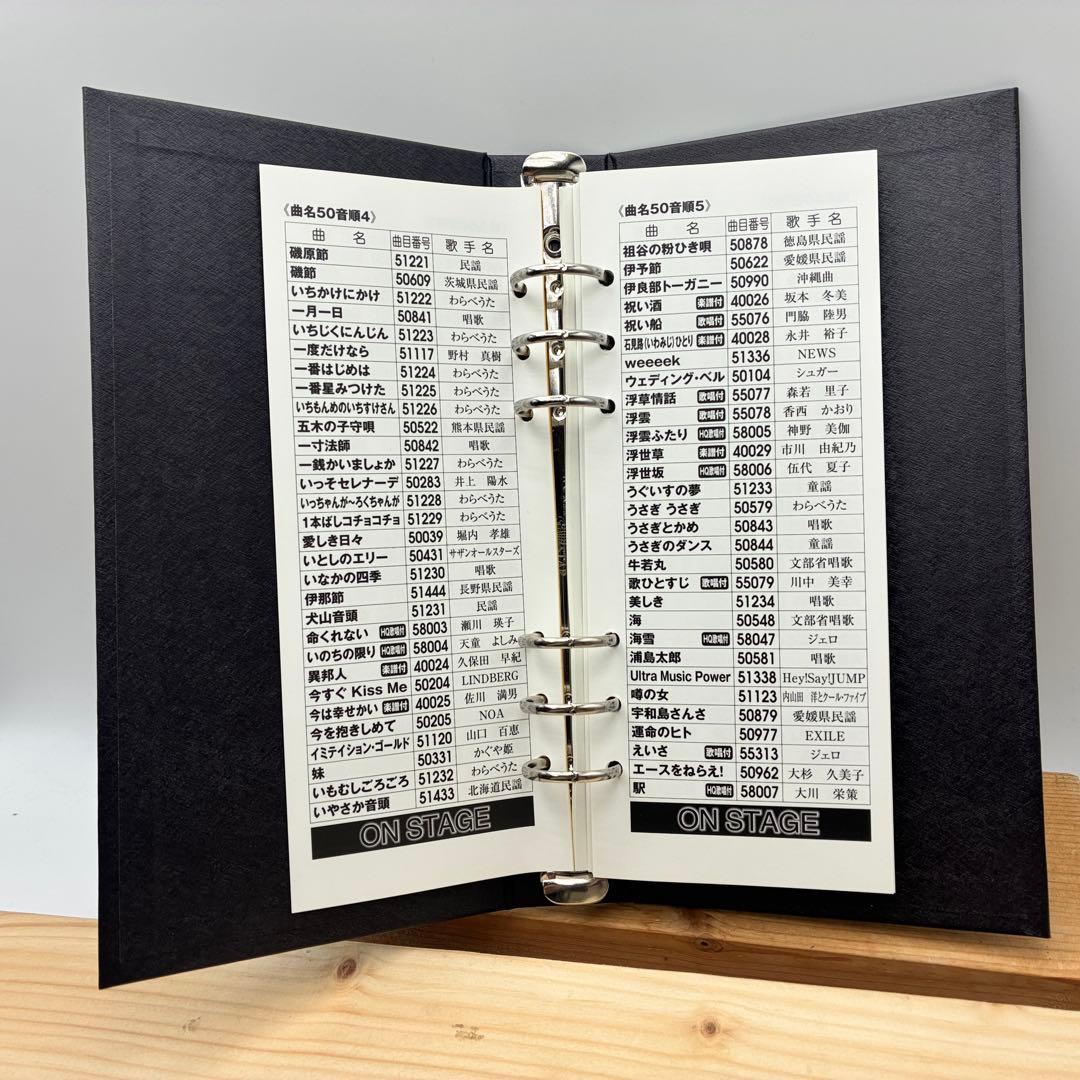 《曲名50音順4》
曲 名 曲目番号 歌手名
磯原節 51221 民謡
磯節 50609 茨城県民謡
いちかけにかけ 51222 わらべうた
一月一日 50841 唱歌
いちじくにんじん 51223 わらべうた
一度だけなら 51117 野村 真樹
一番はじめは 51224 わらべうた
一番星みつけた 51225 わらべうた
いちもんめのいちすけさん 51226 わらべうた
五木の子守唄 50522 熊本県民謡
一寸法師 50842 唱歌
一銭かいましょか 51227 わらべうた
いっそセレナーデ 50283 井上 陽水
いっちゃんが~ろくちゃんが 51228 わらべうた
1本ばしコチョコチョ 51229 わらべうた
愛しき日々 50039 堀内 孝雄
いとしのエリー 50431 サザンオールスターズ
いなかの四季 51230 唱歌
伊那節 51444 長野県民謡
犬山音頭 51231 民謡
命くれない HQ歌唱付 58003 瀬川 瑛子
いのちの限り HQ歌唱付 58004 天童 よしみ
異邦人 楽譜付 40024 久保田 早紀
今すぐ Kiss Me 50204 LINDBERG
今は幸せかい 楽譜付 40025 佐川 満男
今を抱きしめて 50205 NOA
イミテイション・ゴールド 51120 山口 百恵
妹 50331 かぐや姫
いもむしごろごろ 51232 わらべうた
いやさか音頭 51433 北海道民謡
ON STAGE
《曲名50音順5》
曲 名 曲目番号 歌手名
祖谷の粉ひき唄 50878 徳島県民謡
伊予節 50622 愛媛県民謡
伊良部トーガニー 50990 沖縄曲
祝い酒 楽譜付 40026 坂本 冬美
祝い船 歌唱付 55076 門脇 陸男
石見路(いわみじ)ひとり 楽譜付 40028 永井 裕子
weeeek 51336 NEWS
ウェディング・ベル 50104 シュガー
浮草情話 歌唱付 55077 森若 里子
浮雲 歌唱付 55078 香西 かおり
浮雲ふたり HQ歌唱付 58005 神野 美伽
浮世草 楽譜付 40029 市川 由紀乃
浮世坂 HQ歌唱付 58006 伍代 夏子
うぐいすの夢 51233 童謡
うさぎ うさぎ 50579 わらべうた
うさぎとかめ 50843 唱歌
うさぎのダンス 50844 童謡
牛若丸 50580 文部省唱歌
歌ひとすじ 歌唱付 55079 川中 美幸
美しき 51234 唱歌
海 50548 文部省唱歌
海雪 HQ歌唱付 58047 ジェロ
浦島太郎 50581 唱歌
Ultra Music Power 51338 Hey!Say!JUMP
噂の女 51123 内山田 洋とクール・ファイブ
宇和島さんさ 50879 愛媛県民謡
運命のヒト 50977 EXILE
えいさ 歌唱付 55313 ジェロ
エースをねらえ! 50962 大杉 久美子
駅 HQ歌唱付 58007 大川 栄策
ON STAGE